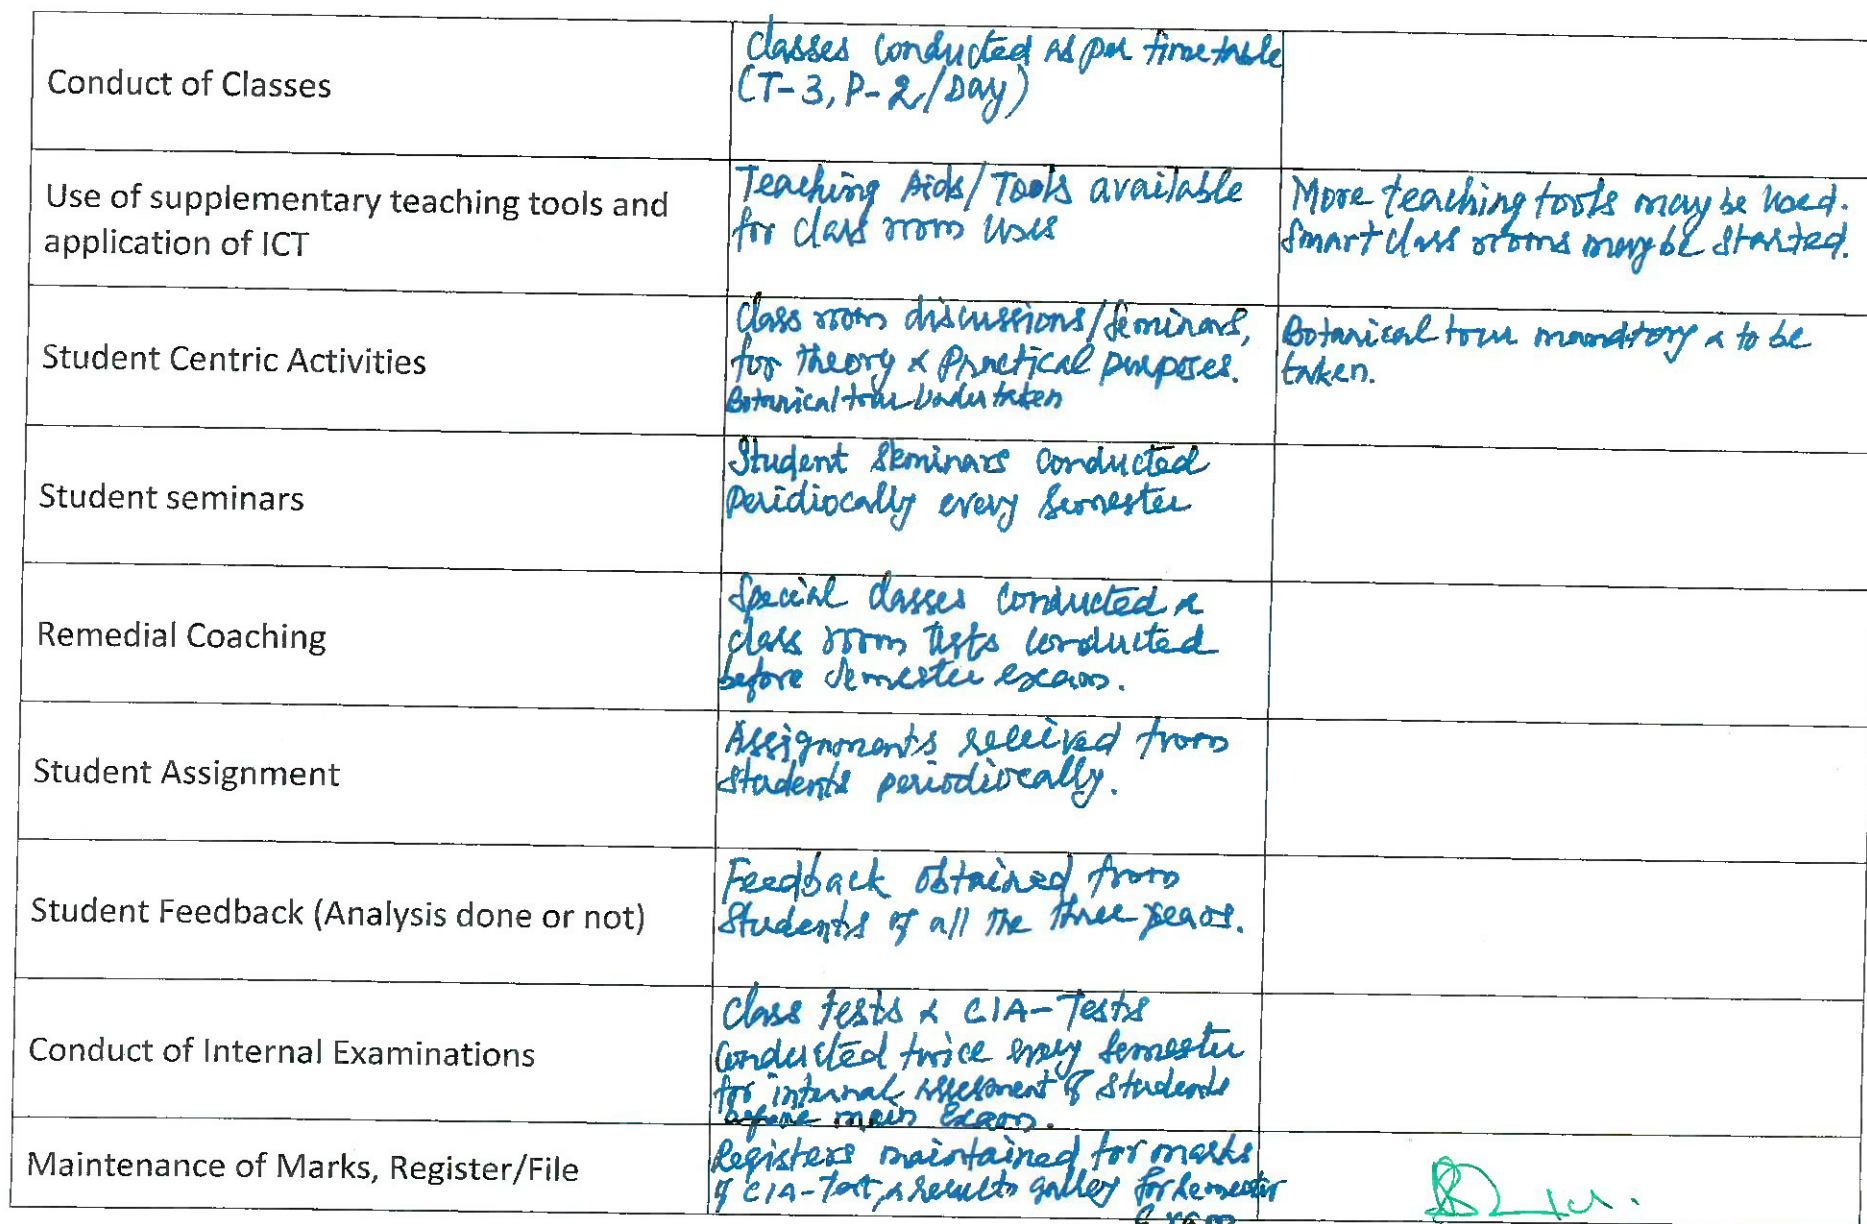 Conduct of Classes
Classes conducted as per time table
(T-3, P-2/Day)
Use of supplementary teaching tools and
application of ICT
Teaching Aids/Tools available
for class room uses
More teaching tools may be used.
Smart class rooms may be started.
Student Centric Activities
Class room discussions/Seminars,
for theory & Practical purposes.
Botanical tour Undertaken
Botanical tour mandtory & to be
taken.
Student seminars
Student Seminars conducted
Peridiocally every Semester
Remedial Coaching
Special classes conducted &
class room tests conducted
before semester exam.
Student Assignment
Assignments received from
students periodiocally.
Student Feedback (Analysis done or not)
Feedback obtained from
Students of all the three years.
Conduct of Internal Examinations
Class tests & CIA-Tests
Conducted twice every Semester
for internal assesment of students
before main Exam.
Maintenance of Marks, Register/File
Registers maintained for marks
of CIA-Test, & results galley for semester
Exam